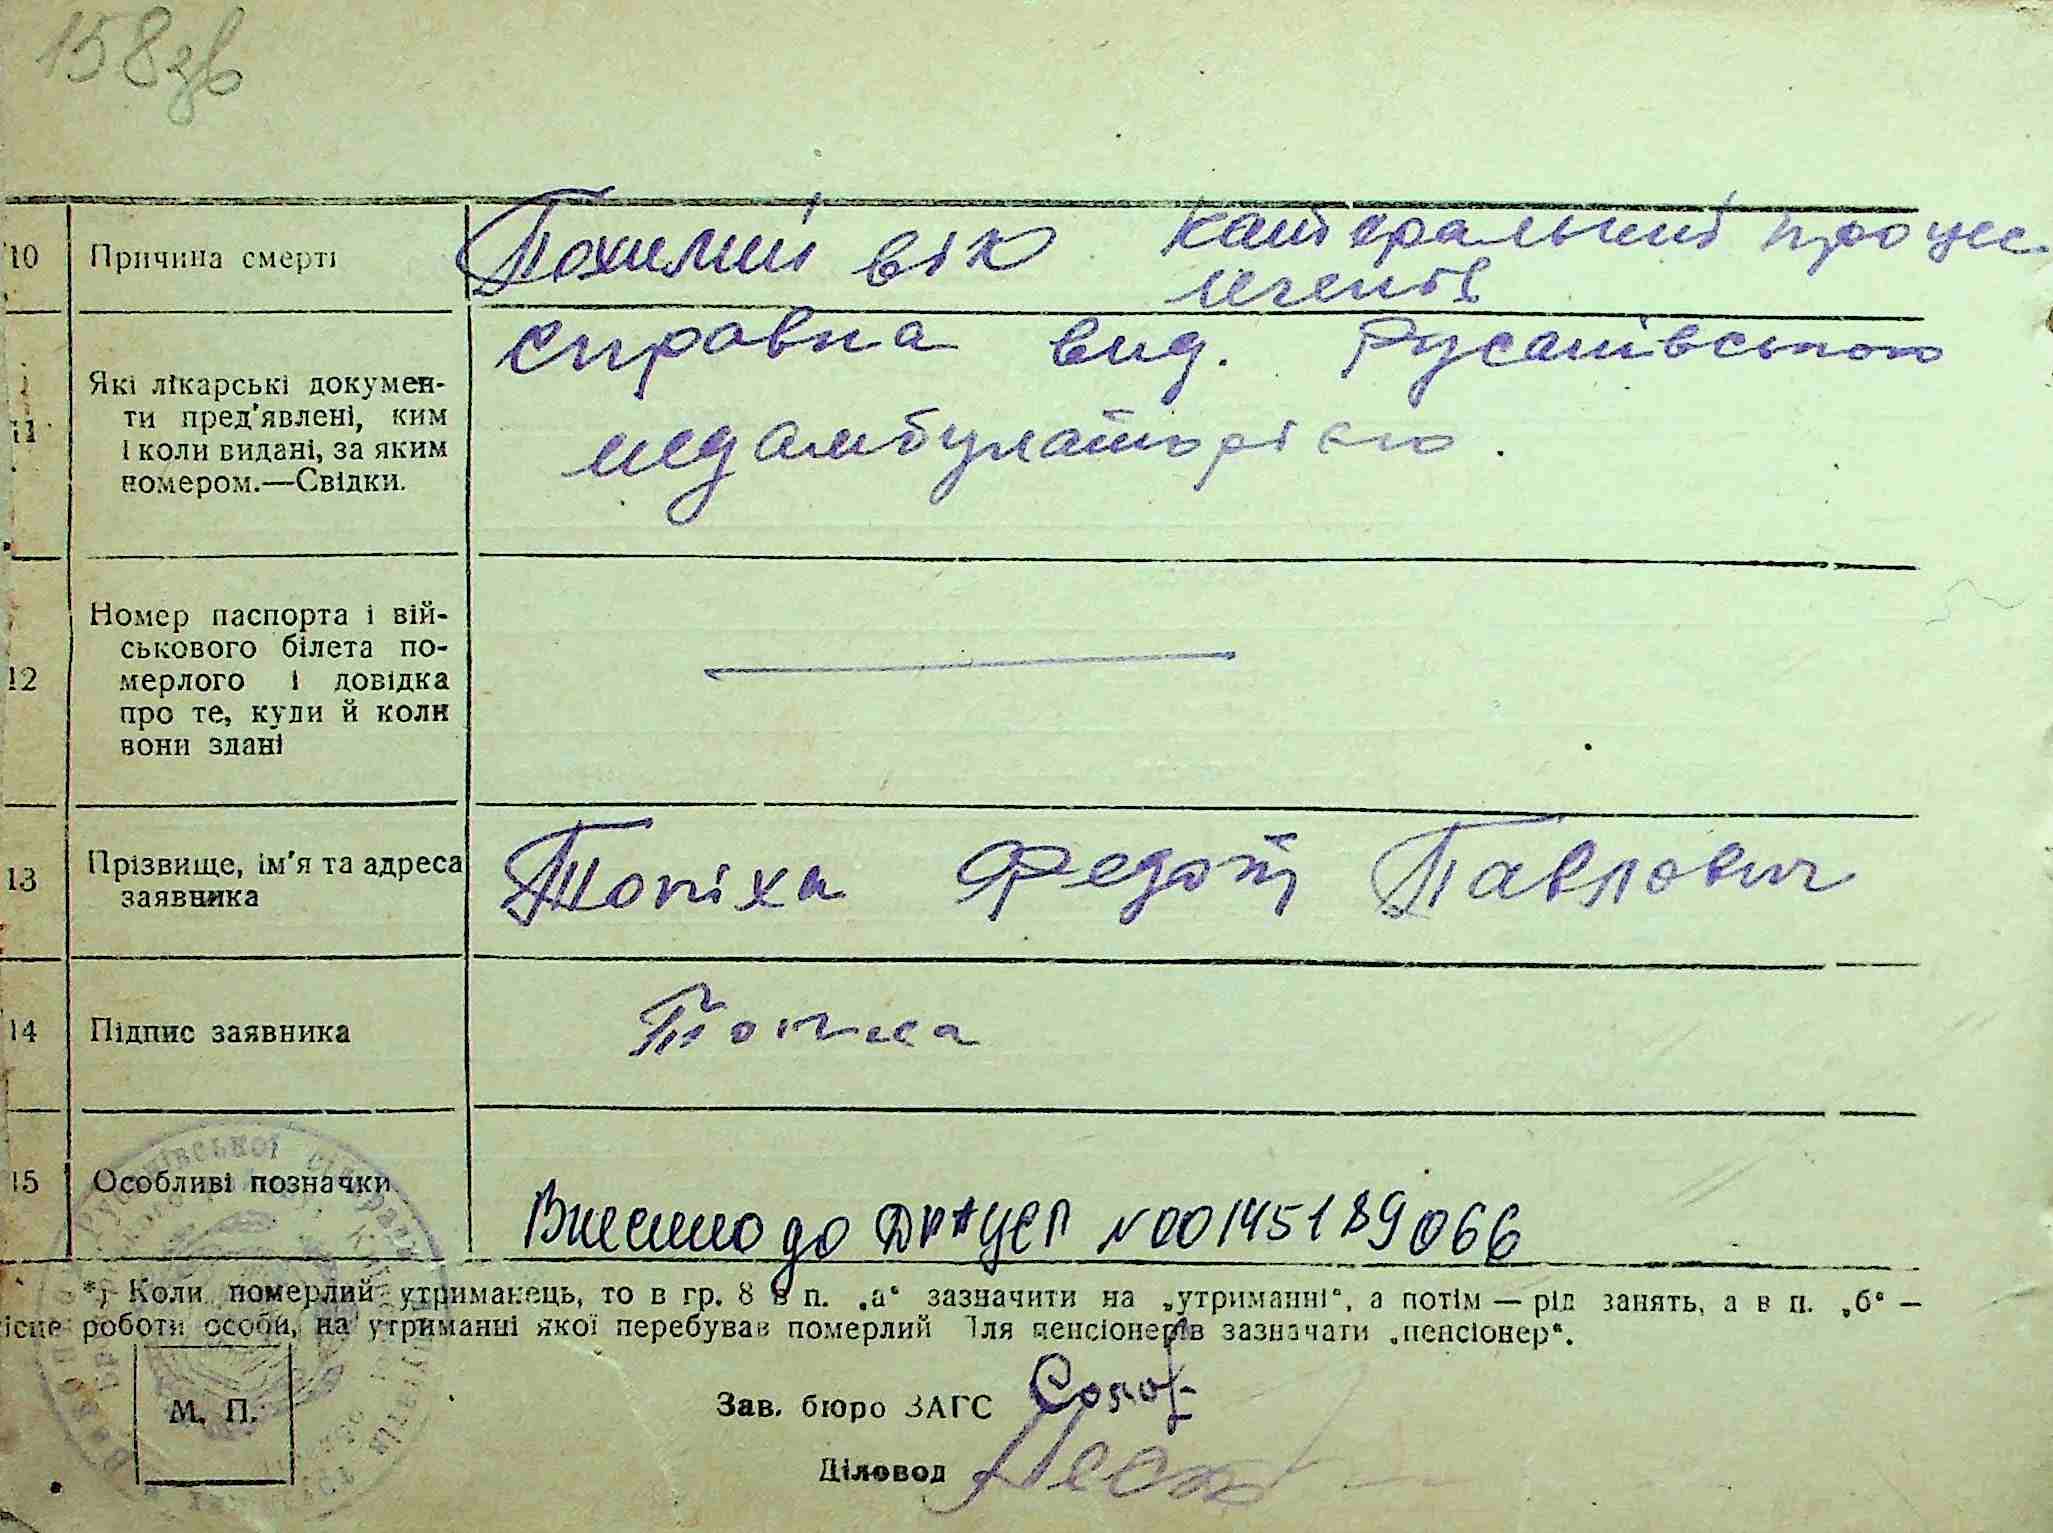 158зв
10 Причина смерті Похилий вік Катеральний процес
легенів
11 Які лікарські докумен-
ти пред'явлені, ким
і коли видані, за яким
номером.—Свідки.
справка вид. Русанівською
медамбулаторією.
12 Номер паспорта і вій-
ськового білета по-
мерлого і довідка
про те, куди й коли
вони здані
13 Прізвище, ім'я та адреса
заявника
Топіха Федот Павлович
14 Підпис заявника Топіха
15 Особливі позначки
Внесено до ДРАЦСГ №00145189066
*) Коли померлий утриманець, то в гр. 8 в п. „а" зазначити на „утриманні", а потім — рід занять, а в п. „б" —
ісце роботи особи, на утриманні якої перебував померлий Для пенсіонерів зазначати „пенсіонер".
М. П.
Зав. бюро ЗАГС
Діловод